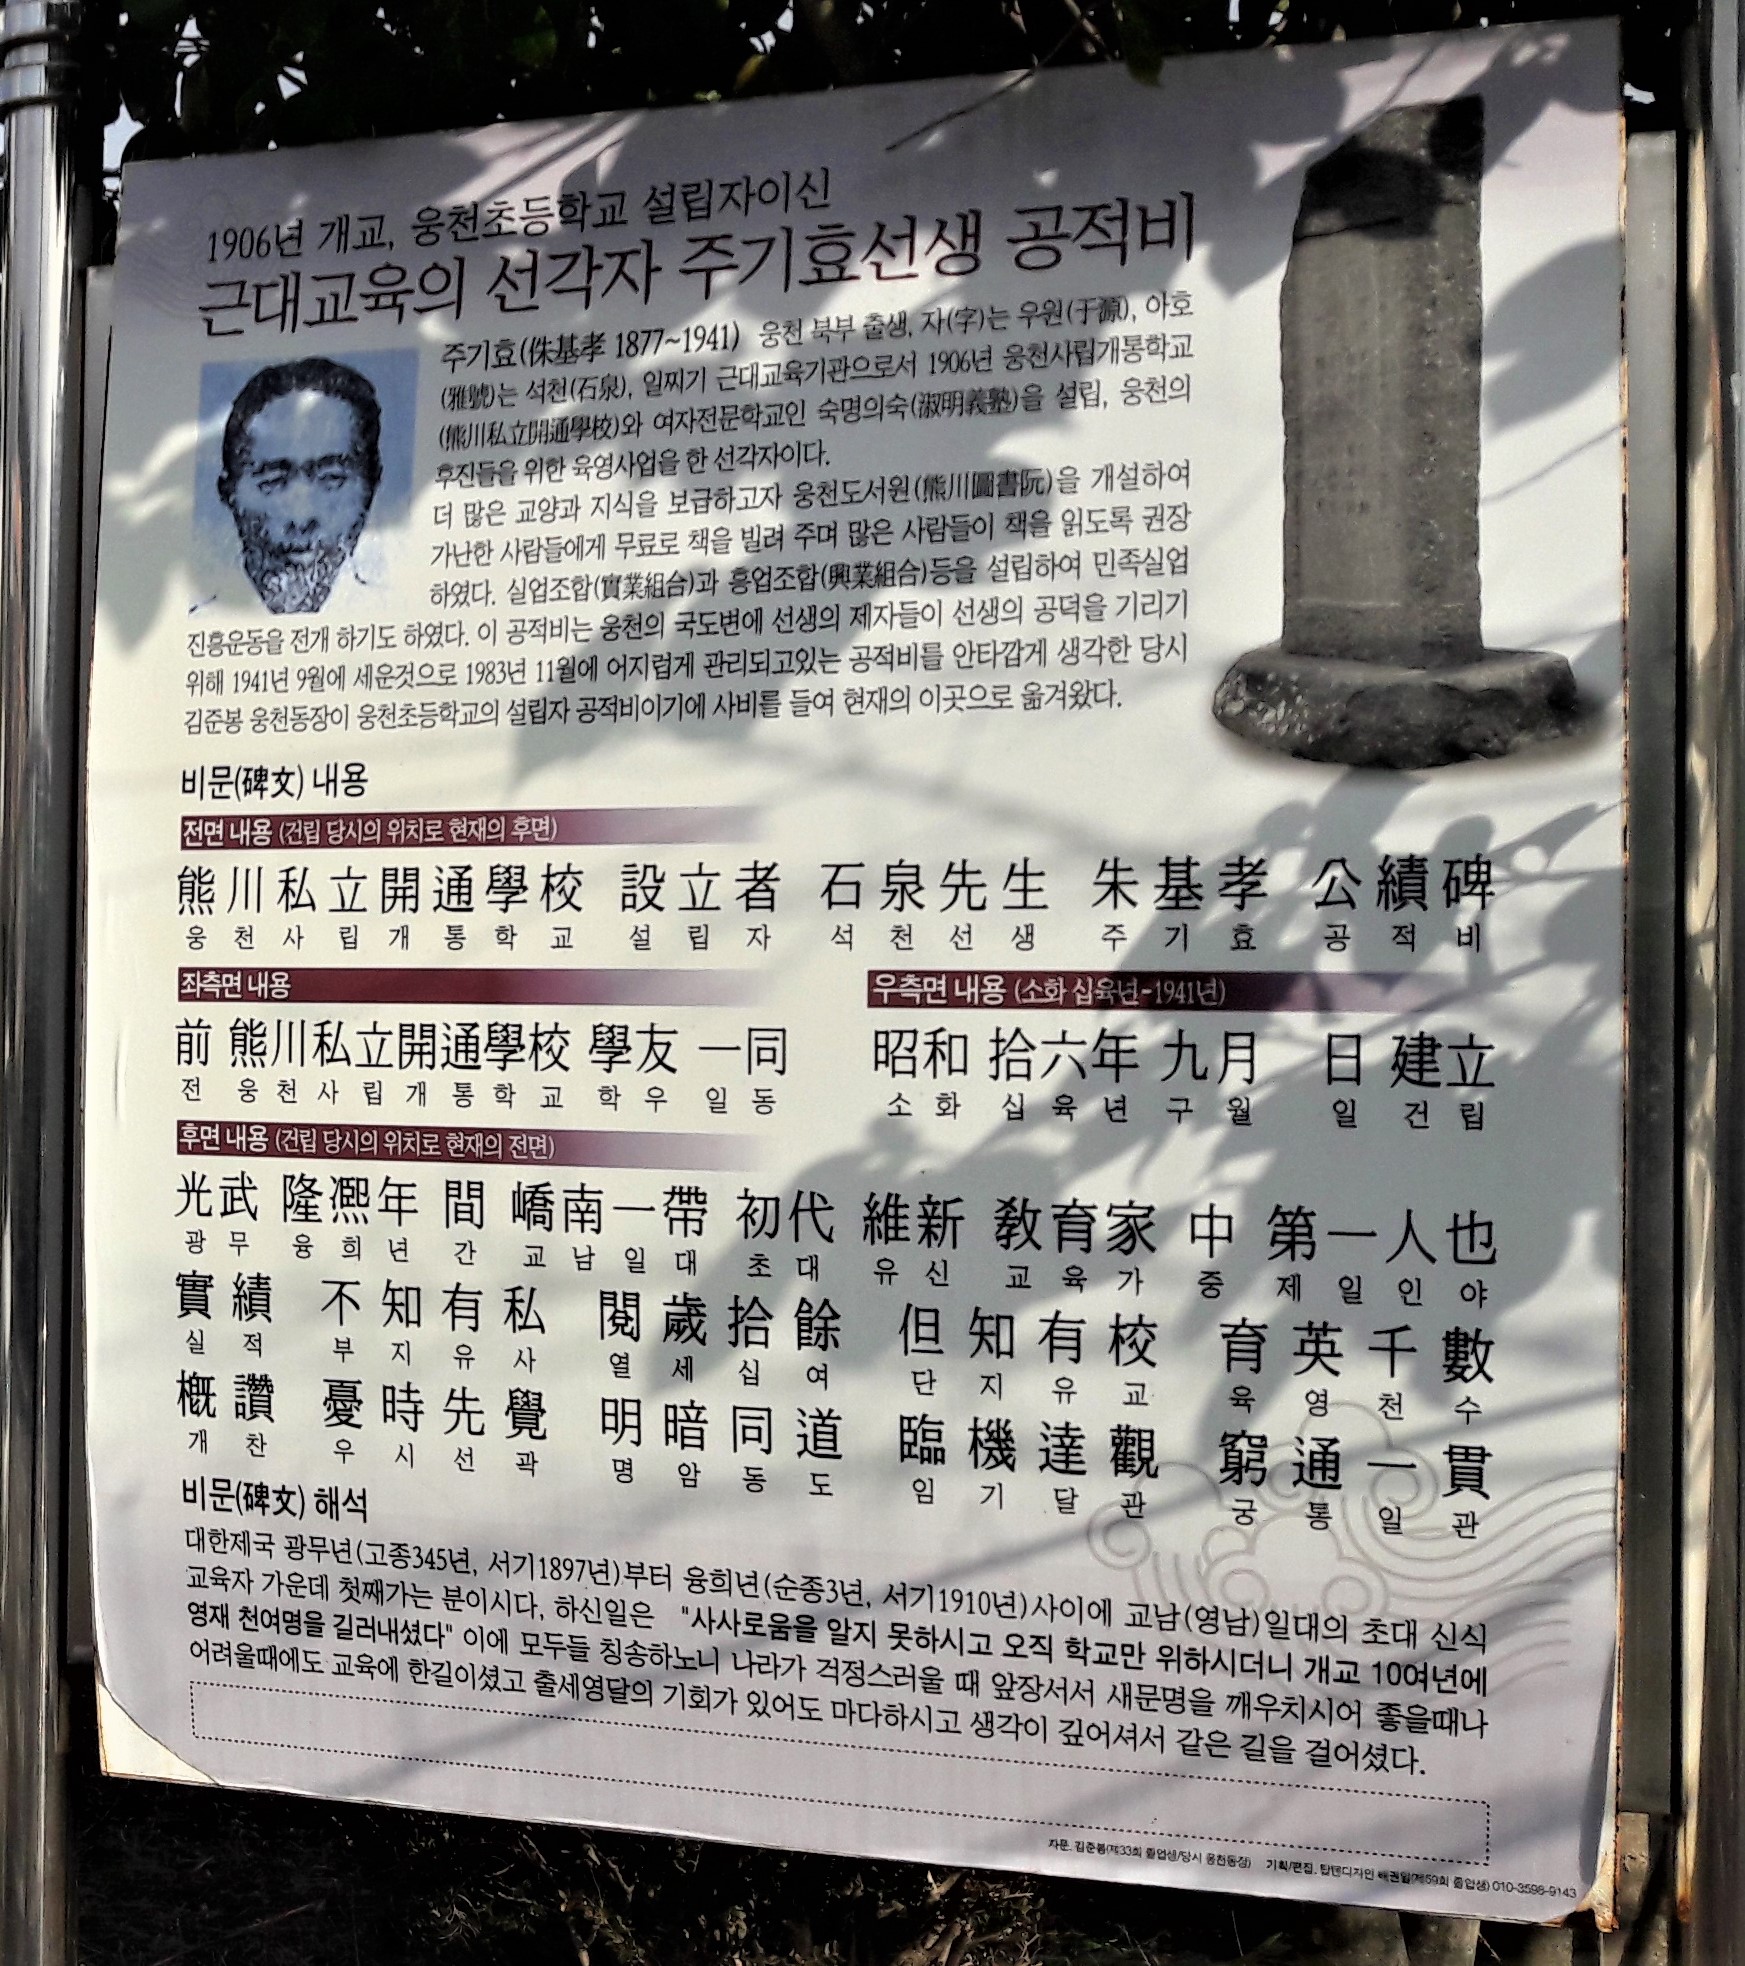 1906년 개교, 웅천초등학교 설립자이신
근대교육의 선각자 주기효선생 공적비
주기효(侏基孝 1877~1941) 웅천 북부 출생, 자(字)는 우원(于源), 아호
(雅號)는 석천(石泉), 일찌기 근대교육기관으로서 1906년 웅천사립개통학교
(熊川私立開通學校)와 여자전문학교인 숙명의숙(淑明義塾)을 설립, 웅천의
후진들을 위한 육영사업을 한 선각자이다.
더 많은 교양과 지식을 보급하고자 웅천도서원(熊川圖書阮)을 개설하여
가난한 사람들에게 무료로 책을 빌려 주며 많은 사람들이 책을 읽도록 권장
하였다. 실업조합(實業組合)과 흥업조합(興業組合)등을 설립하여 민족실업
진흥운동을 전개 하기도 하였다. 이 공적비는 웅천의 국도변에 선생의 제자들이 선생의 공덕을 기리기
위해 1941년 9월에 세운것으로 1983년 11월에 어지럽게 관리되고있는 공적비를 안타깝게 생각한 당시
김준봉 웅천동장이 웅천초등학교의 설립자 공적비이기에 사비를 들여 현재의 이곳으로 옮겨왔다.
비문(碑文) 내용
전면 내용 (건립 당시의 위치로 현재의 후면)
熊川私立開通學校 設立者 石泉先生 朱基孝 公績碑
웅천사립개통학교 설립자 석천선생 주기효 공적비
좌측면 내용
前 熊川私立開通學校 學友 一同
전 웅천사립개통학교 학우 일동
우측면 내용 (소화 십육년-1941년)
昭和 拾六年 九月 日 建立
소화 십육년 구월 일 건립
후면 내용 (건립 당시의 위치로 현재의 전면)
光武 隆凞年 間 嶠南一帶 初代 維新 敎育家 中 第一人也
광무 융희년 간 교남일대 초대 유신 교육가 중 제일인야
實績 不知有私 閱歲拾餘 但知有校 育英千數
실적 부지유사 열세십여 단지유교 육영천수
槪讚 憂時先覺 明暗同道 臨機達觀 窮通一貫
개찬 우시선곽 명암동도 임기달관 궁통일관
비문(碑文) 해석
대한제국 광무년(고종345년, 서기1897년)부터 융희년(순종3년, 서기1910년)사이에 교남(영남)일대의 초대 신식
교육자 가운데 첫째가는 분이시다, 하신일은 "사사로움을 알지 못하시고 오직 학교만 위하시더니 개교 10여년에
영재 천여명을 길러내셨다" 이에 모두들 칭송하노니 나라가 걱정스러울 때 앞장서서 새문명을 깨우치시어 좋을때나
어려울때에도 교육에 한길이셨고 출세영달의 기회가 있어도 마다하시고 생각이 깊어셔서 같은 길을 걸어셨다.
자문. 김준봉(제33회 졸업생/당시 웅천동장) 기획/편집. 탑텐디자인 배권일(제59회 졸업생) 010-3598-9143